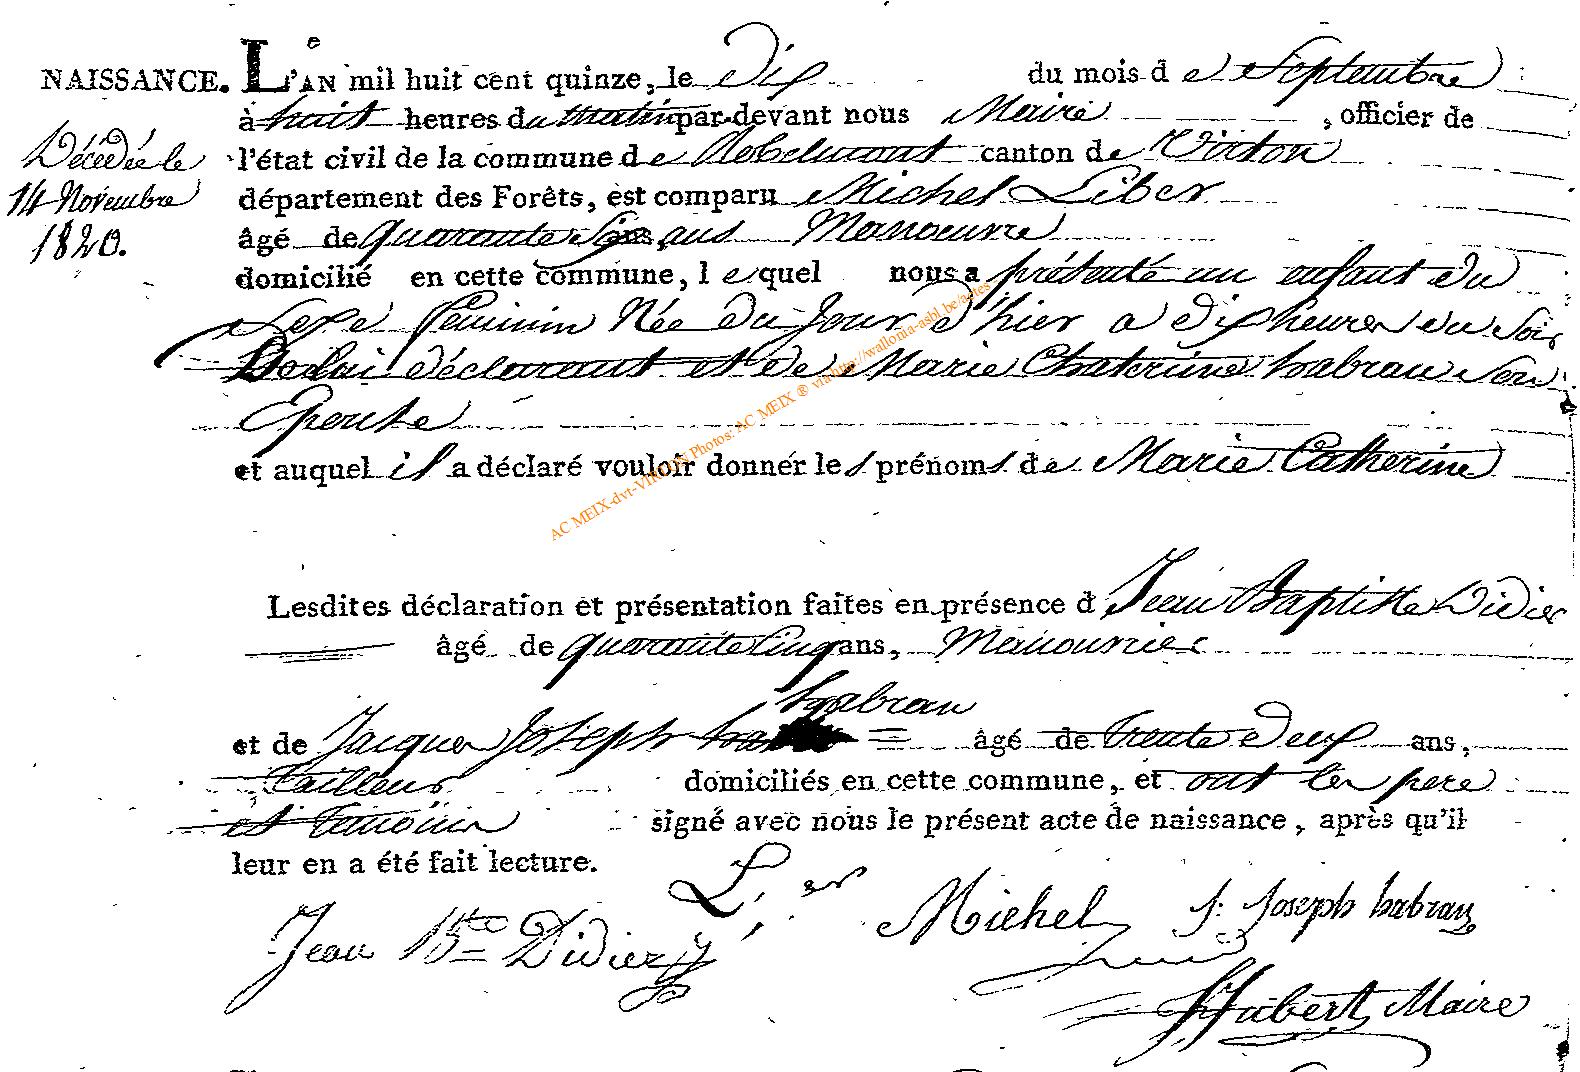 NAISSANCE. L'AN mil huit cent quinze, le Dix du mois de Septembre
à huit heures du matin par-devant nous Maire, officier de
Décédée le
14 Novembre
1820.
l'état civil de la commune de Robelmont canton de Virton
département des Forêts, est comparu Michel Liber
âgé de quarante Six ans, Manoeuvre
domicilié en cette commune, lequel nous a présenté un enfant du
Sexe féminin Née du Jour d'hier a dix heures du Soir
De lui déclarant et de Marie Chaterine habran Son
Epouse
et auquel il a déclaré vouloir donner les prénoms de Marie Catherine
Lesdites déclaration et présentation faites en présence d Jean Baptiste Didier
âgé de quarante Cinq ans, Manouvrier
habran
et de Jacques Joseph âgé de trente Deux ans,
tailleur domiciliés en cette commune, et ont les pere
et temoins signé avec nous le présent acte de naissance, après qu'il
leur en a été fait lecture.
Michel J: Joseph habran
Jean Bte Didier
Hubert Maire
AC MEIX-dvt-VIRTON Photos: AC MEIX ® via http://wallonia-asbl.be/actes